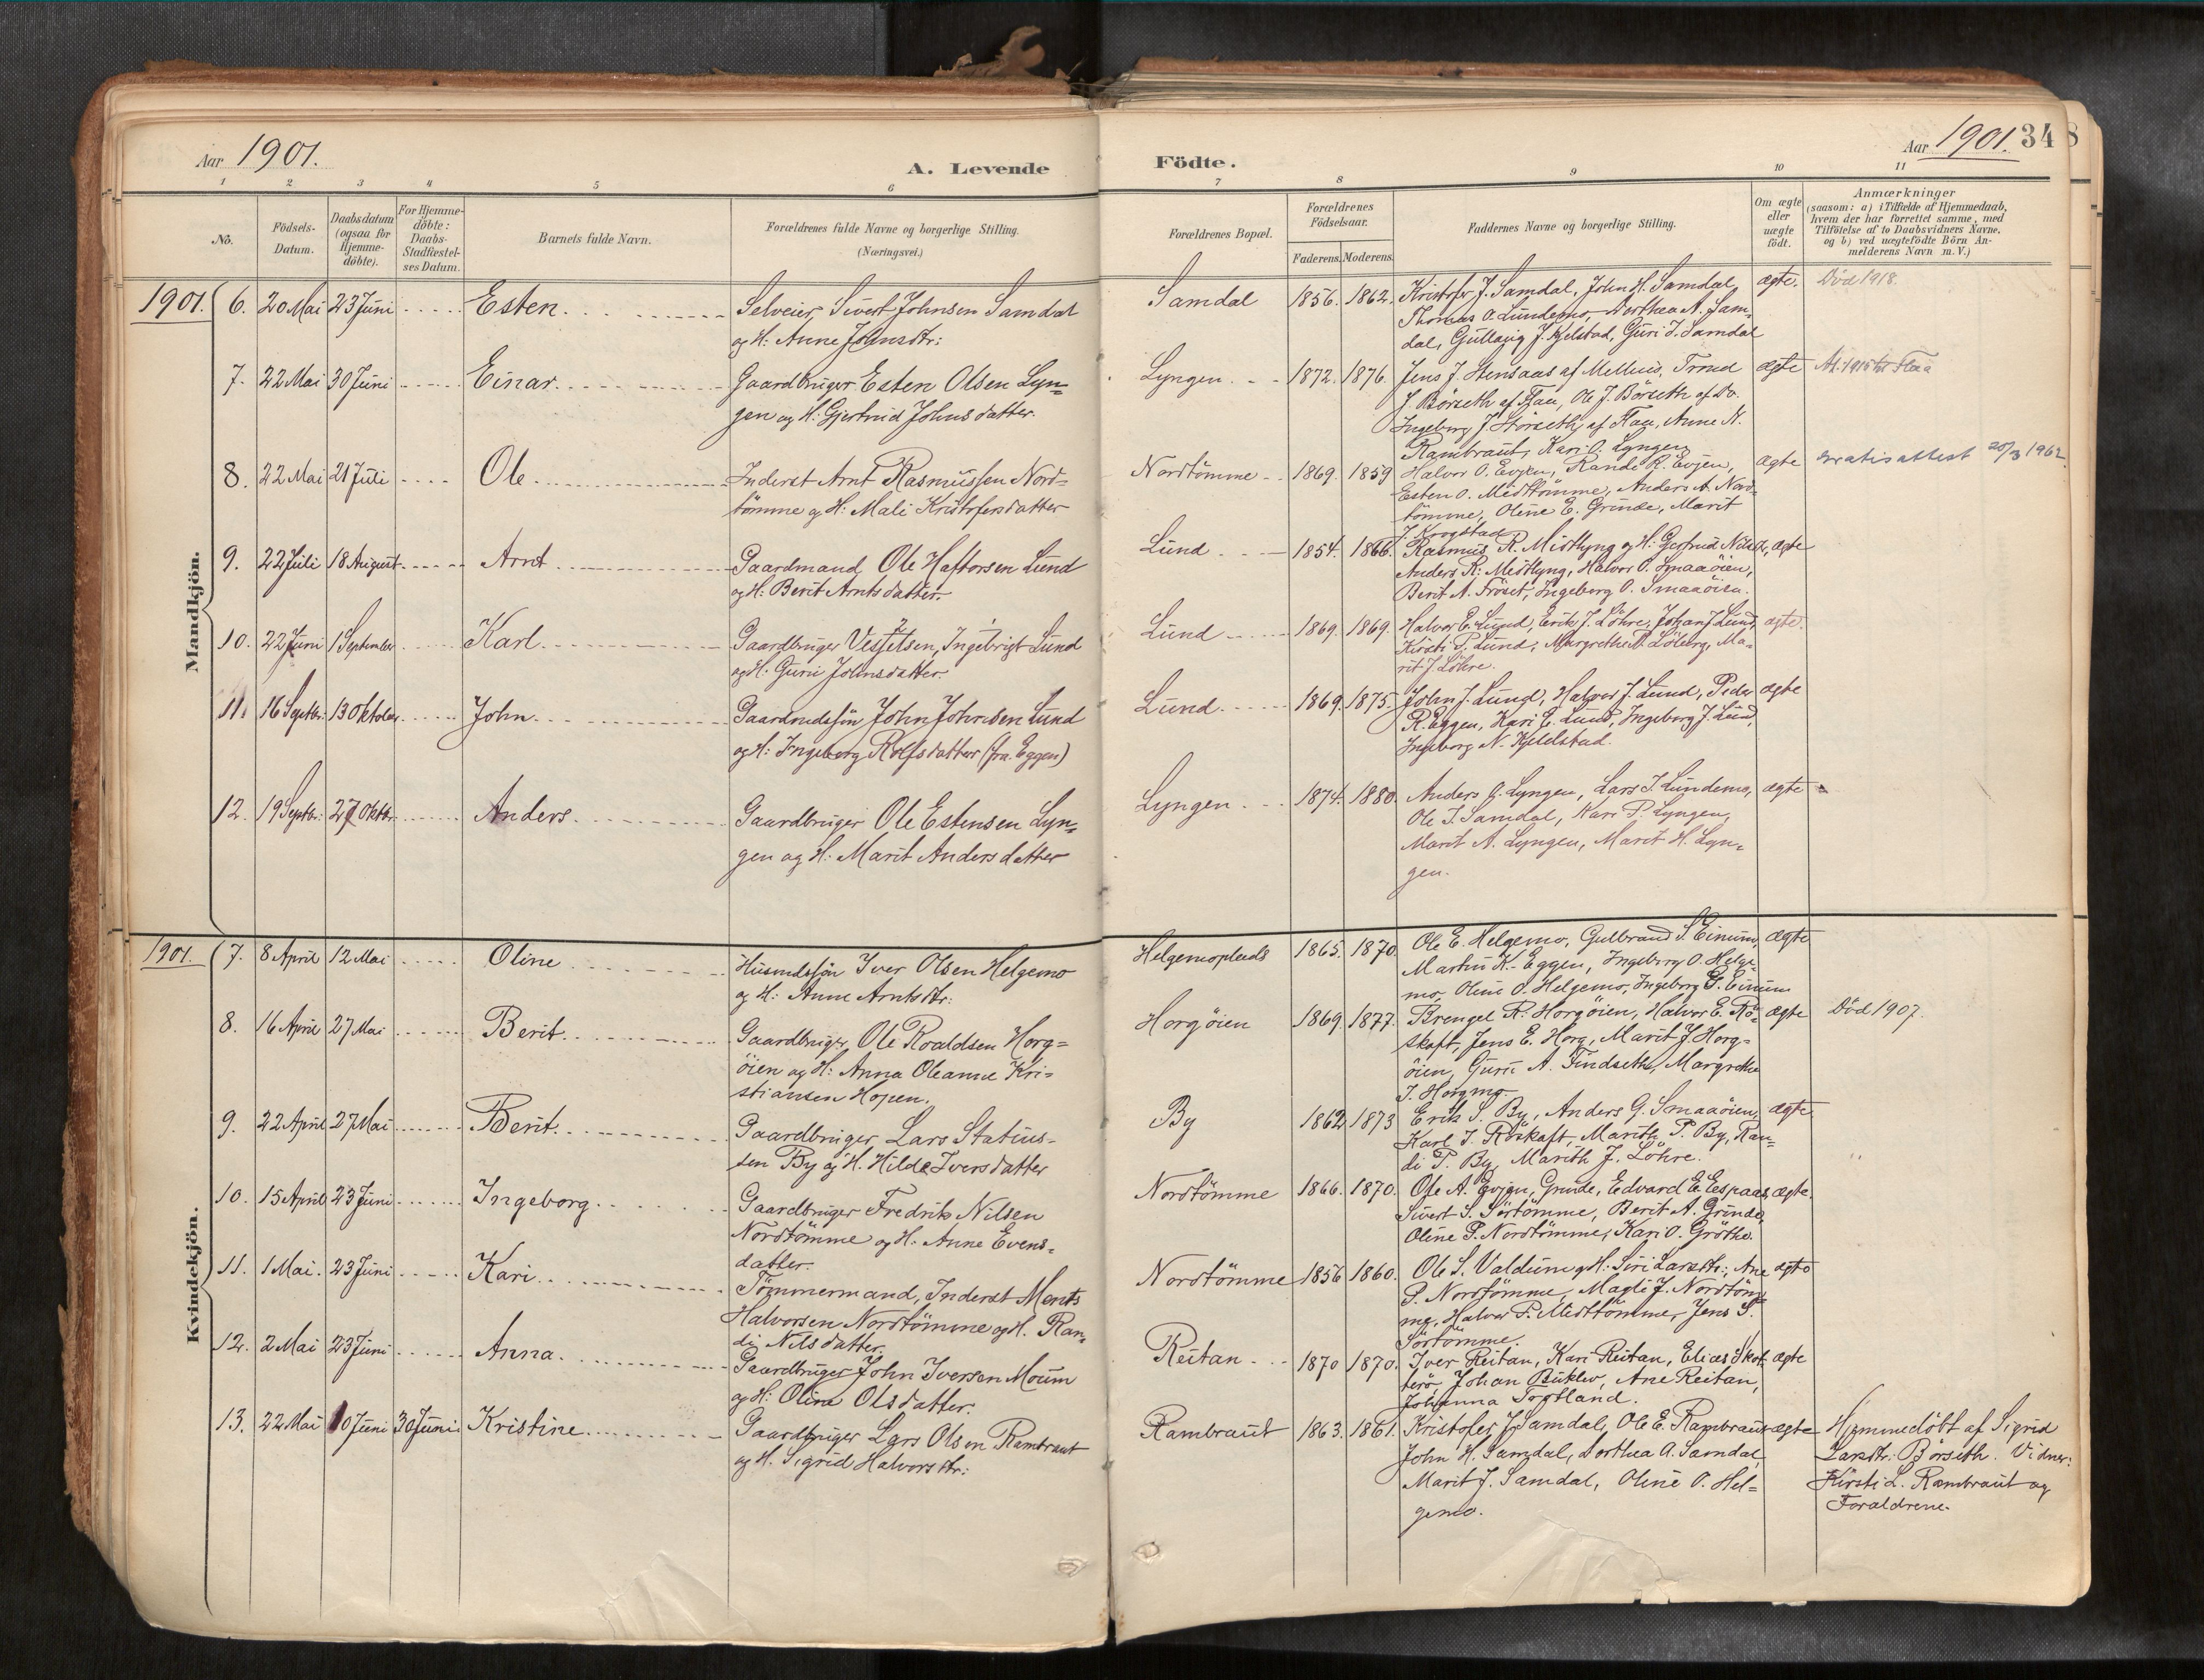 Aar 1901. A. Levende
1 2 3 4 5 6
No. Födsels-Datum. Daabsdatum (ogsaa for Hjemme-döbte). For Hjemme-döbte: Daabs-Stadfæstel-ses Datum. Barnets fulde Navn. Forældrenes fulde Navne og borgerlige Stilling. (Næringsvei.)
Mandkjön.
1901. 6. 20 Mai 23 Juni Esten. Selveier Sivert Johnsen Samdal
og H: Anne Johnsdtr:
7. 22 Mai 30 Juni Einar. Gaardbruger Esten Olsen Lyn=
gen og H: Gjertrud Johnsdatter.
8. 22 Mai 21 Juli Ole Inderst Arnt Rasmussen Nord=
tömme og H: Mali Kristofersdatter
9. 22 Juli 18 August Arnt Gaardmand Ole Haftorsen Lund
og H: Berit Arntsdatter.
10. 22 Juni 1 September Karl Gaardbruger Ingebrigt Lund
og H: Guru Johnsdatter.
11. 16 Septbr: 13 Oktober John Gaardmdssön John Johnsen Lund
og H: Ingeborg Rolfsdatter (fra Eggen)
12. 19 Septbr: 27 Oktbr. Anders. Gaardbruger Ole Estensen Lyn=
gen og H: Marit Andersdatter
Kvindekjön.
1901. 7. 8 April 12 Mai Oline Husmdssön Iver Olsen Helgemo
og H: Anne Arntsdtr:
8. 16 April 27 Mai Berit. Gaardbruger Ole Roaldsen Horg=
öien og H: Anna Oleanne Kri=
stiansen Hopen.
9. 22 April 27 Mai Berit. Gaardbruger Lars Statius-
sen By og H. Hilda Iversdatter
10. 15 April 23 Juni Ingeborg Gaardbruger Fredrik Nilsen
Nordtömme og H. Anne Evens=
datter.
11. 1 Mai. 23 Juni Kari Tömmermand, Inderst Monts
Halvorsen Nordtömme og H. Ran=
di Nilsdatter.
12. 2 Mai 23 Juni Anna. Gaardbruger John Iversen Moum
og H: Olina Olsdatter.
13. 22 Mai 10 Juni 30 Juni Kristine Gaardbruger Lars Olsen Rambraut
og H. Sigrid Halvorsdtr:
Födte. Aar 1901. 348
7 8 9 10 11
Forældrenes Bopæl. Forældrenes Födselsaar. Faderens. Moderens. Faddernes Navne og borgerlige Stilling. Om ægte eller uægte födt. Anmærkninger (saasom: a) i Tilfælde af Hjemmedaab, hvem der har forrettet samme, med Tilföielse af to Daabsvidners Navne, og b) ved uægtefödte Börn An-melderens Navn m. V.)
Samdal 1856. 1862. Kristofer J. Samdal, John H. Samdal, ægte. Död 1918.
Thomas O. Lundemo, Dorthea A. Sam=
dal, J. Kjelstad, Guri I. Samdal
Lyngen 1872. 1876. Jens J. Stensaas af Melhus, Trond ægte 1915 til Flaa
J. Börseth af Flaa, Ole J. Börseth af Do.
Ingeborg J. Störseth af Flaa, Anne N.
Rambraut, Kari O. Lyngen
Nordtömme 1869. 1859 Halvor O. Evjen, Randi R. Evjen, ægte Gratisattest 20/3 1962.
Esten O. Midttömme, Anders A. Nord=
tömme, Oline E. Grinde, Marit
J. Krogstad
Lund. 1854. 1866. Rasmus R. Midtlyng og H: Gjertrud Nilsd., ægte
Anders R. Midtlyng, Halvor O. Smaaöien,
Berit A. Fröset, Ingeborg O. Smaaöien.
Lund 1869. 1869. Halvor E. Lund, Erik J. Löhre, Johan J. Lund, ægte.
Kirsti P. Lund, Margrethe P. Löberg, Ma=
rit J. Löhre.
Lund. 1869. 1875. John J. Lund, Halvor J. Lund, Peder ægte
R. Eggen, Kari E. Lund, Ingeborg J. Lund,
Ingeborg N. Kjelstad.
Lyngen. 1874. 1880. Anders O. Lyngen, Lars I. Lundemo, ægte
Ole I. Samdal, Kari P. Lyngen,
Marit A. Lyngen, Marit H. Lyn=
gen.
Helgemoplads 1865. 1870 Ole E. Helgemo, Gulbrand S. Einum, ægte
Martin K. Eggen, Ingeborg O. Helge=
mo, Oline O. Helgemo, Ingeborg G. Einum
Horgöien 1869. 1877. Brengel R. Horgöien, Halvor E. Rö= ægte Död 1907.
skaft, Jens E. Horg, Marit J. Horg=
öien, Guru A. Findseth, Margrethe
I. Horgmo.
By 1862 1873 Erik S. By, Anders G. Smaaöien, ægte
Karl I. Röskaft, Marith P. By, Ran=
di P. By, Marith J. Löhre.
Nordtömme 1866. 1870. Ole A. Evjen, Grinde, Edvard E. Espaas, ægte.
Sivert S. Sörtömme, Berit A. Grinde,
Oline P. Nordtömme, Kari O. Gröthe.
Nordtömme 1856 1860. Ole S. Valdum og H: Siri Larsdtr:, Ane ægte
P. Nordtömme, Magli J. Nordtöm=
me, Halvor P. Midttömme, Jens S.
Sörtömme.
Reitan 1870 1870. Iver Reitan, Kari Reitan, Elias Skot= ægte
terö, Johan Buklev, Ane Reitan,
Johanna Foßland.
Rambraut 1863. 1861. Kristofer J. Samdal, Ole E. Rambraut ægte Hjemmedöbt af Sigrid
John H. Samdal, Dorthea A. Samdal, Larsdtr: Börseth. Vidner:
Marit J. Samdal, Oline O. Hel= Kirsti L. Rambraut og
gemo. Forældrene.